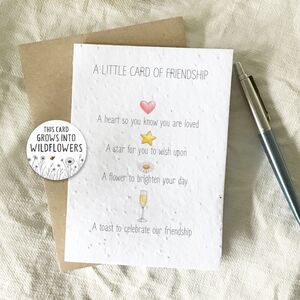 A LITTLE CARD OF FRIENDSHIP
A heart so you know you are loved
A star for you to wish upon
A flower to brighten your day
A toast to celebrate our friendship
THIS CARD
GROWS INTO
WILDFLOWERS